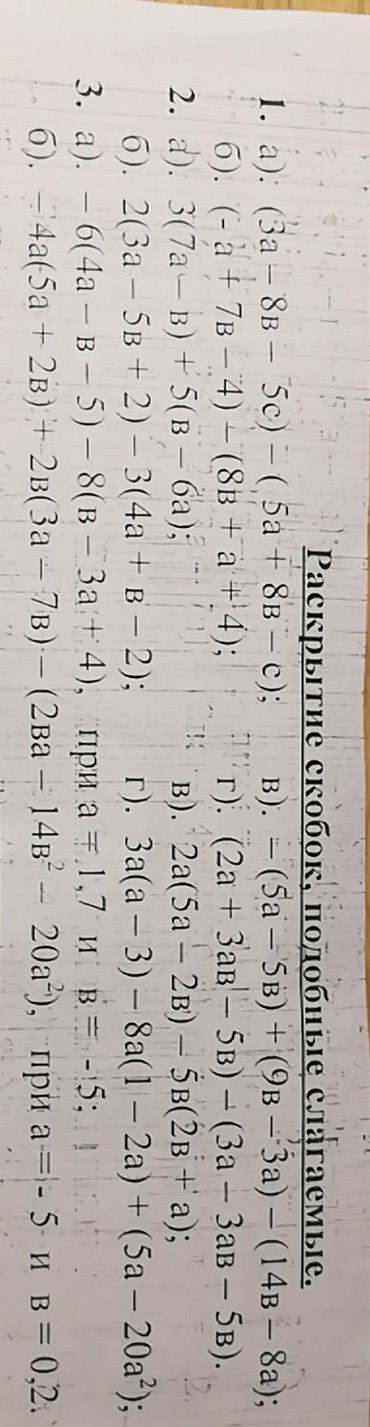 Раскрытие скобок, подобные слагаемые.
1. а). (3а – 8в – 5с) – ( 5а + 8в – с); в). – (5а – 5в) + (9в – 3а) – (14в – 8а);
б). (-а + 7в – 4) – (8в + а + 4); г). (2а + 3ав – 5в) – (3а – 3ав – 5в).
2. а). 3(7а – в) + 5(в – 6а); в). 2а(5а – 2в) – 5в(2в + а);
б). 2(3а – 5в + 2) – 3(4а + в – 2); г). 3а(а – 3) – 8а(1 – 2а) + (5а – 20а²);
3. а). – 6(4а – в – 5) – 8(в – 3а + 4), при а = 1,7 и в = - 5;
б). – 4а(5а + 2в) + 2в(3а – 7в) – (2ва – 14в² – 20а²), при а = - 5 и в = 0,2.